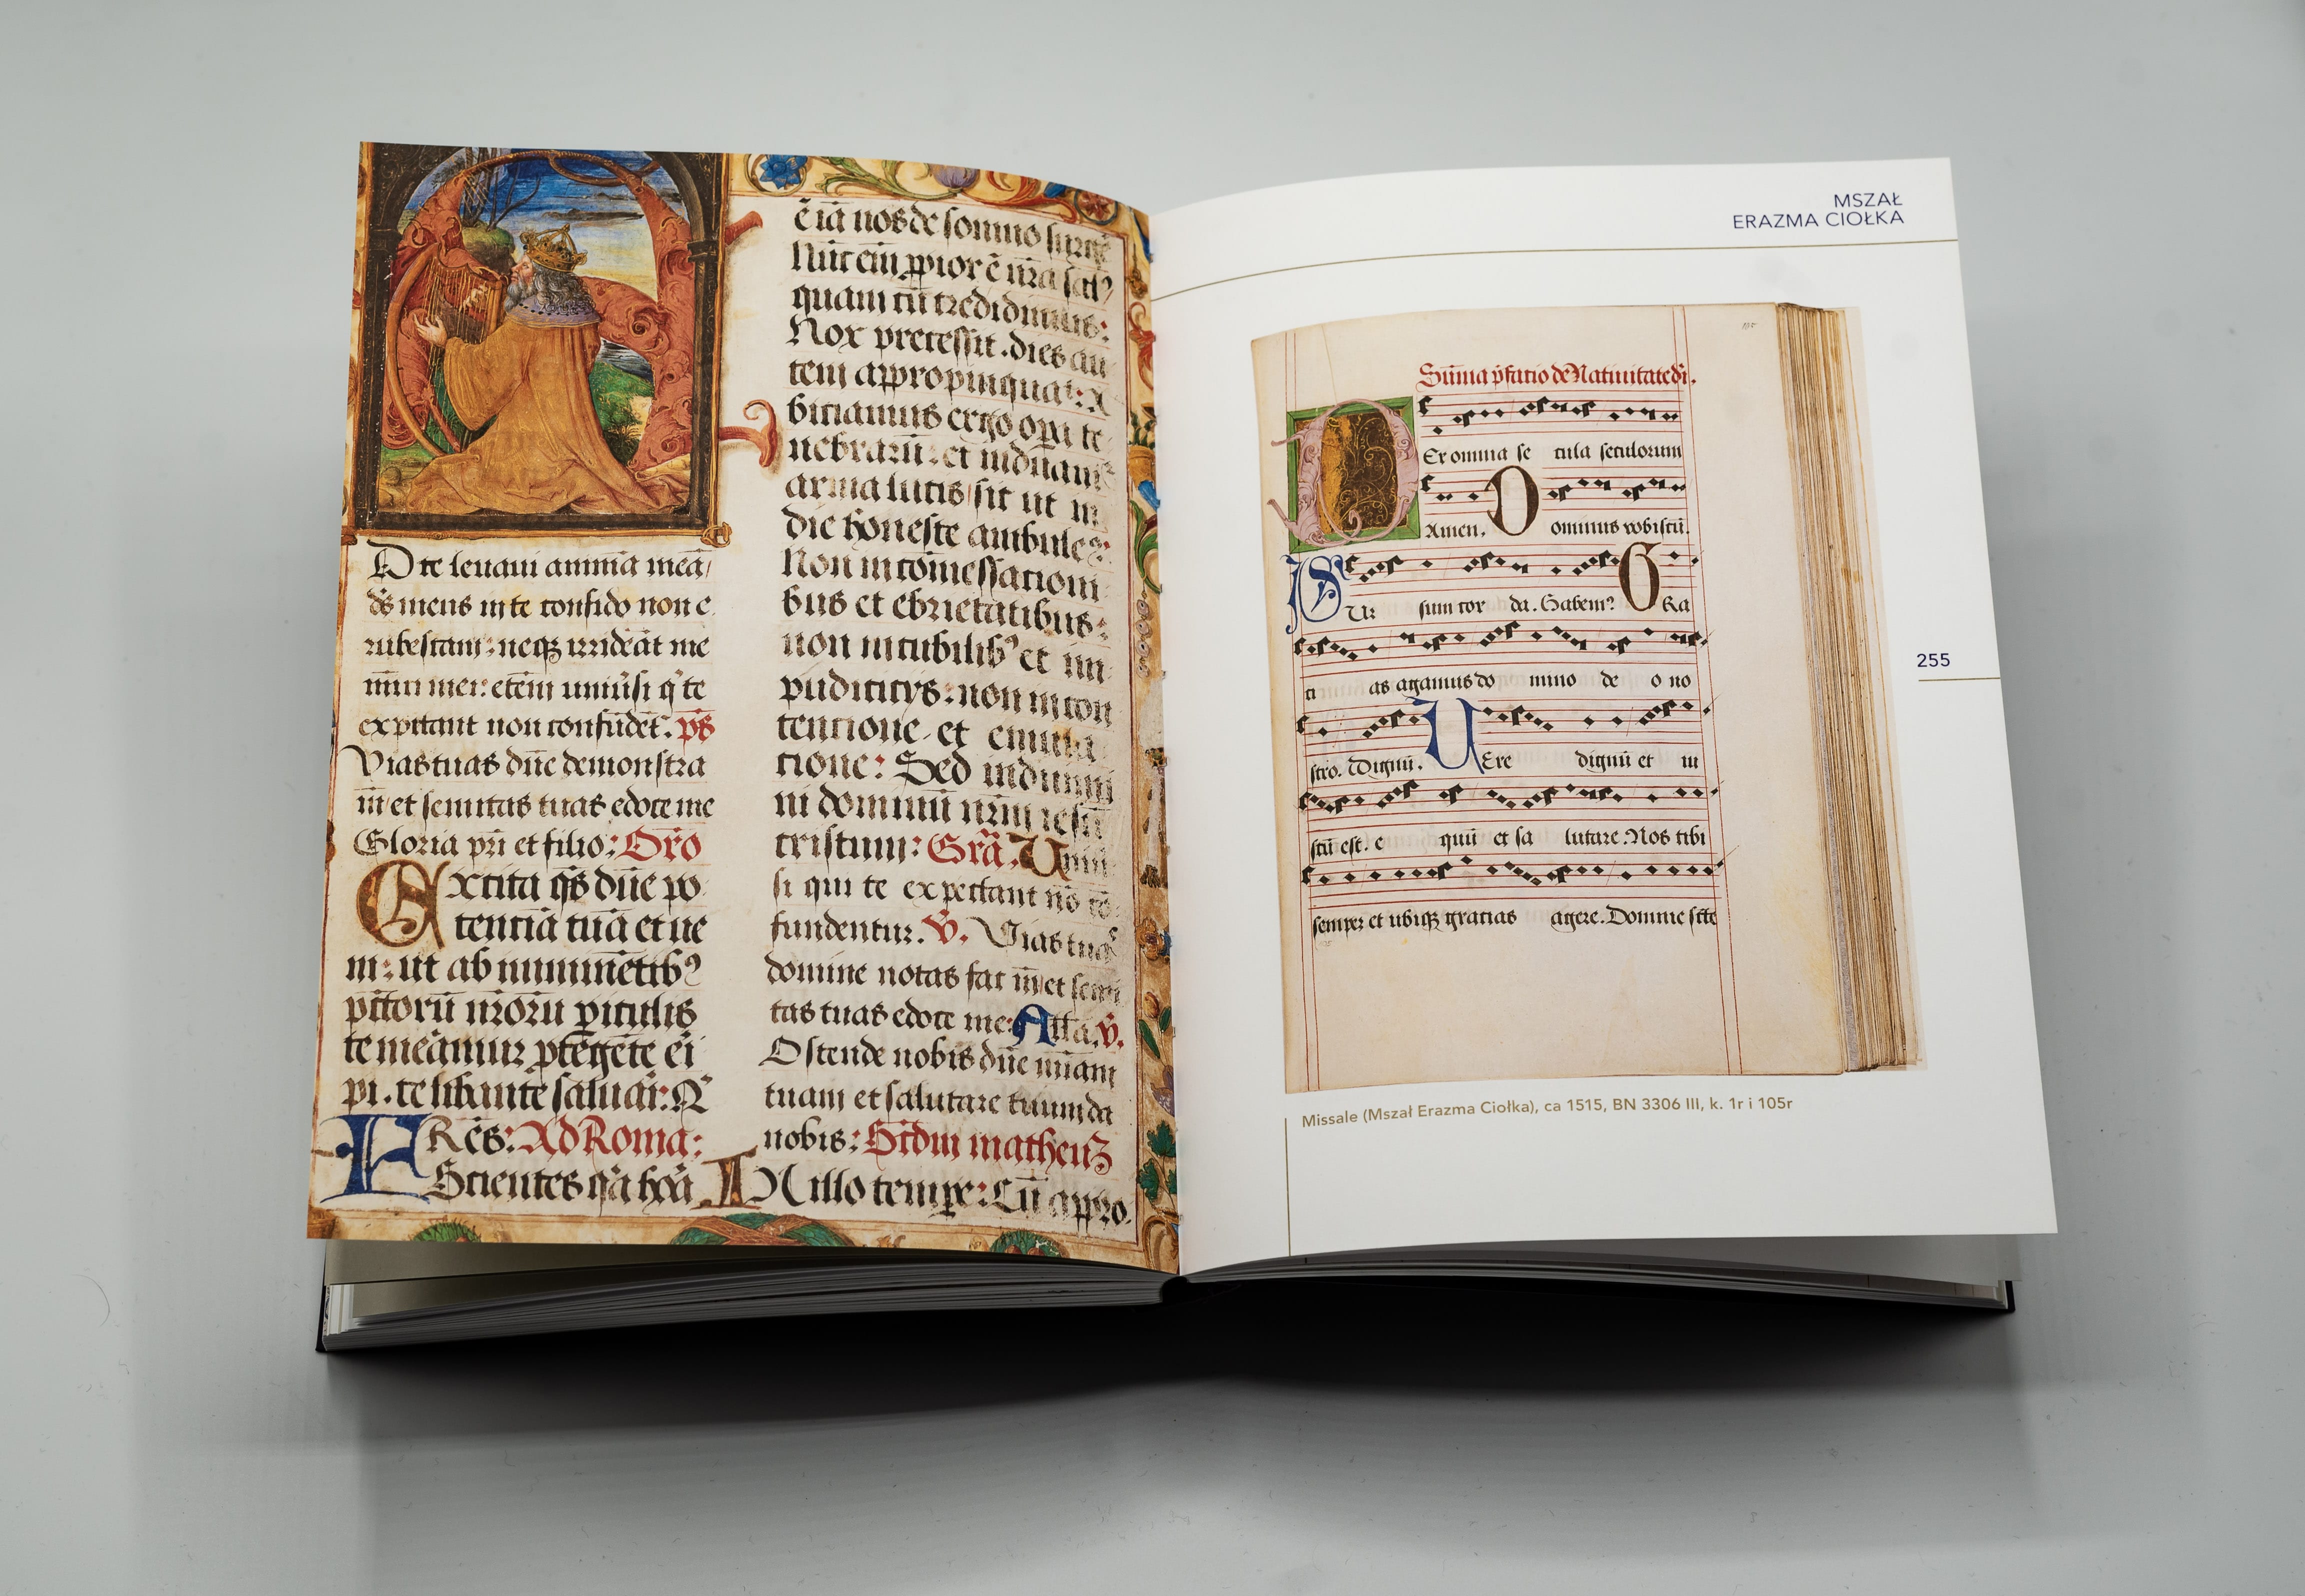 D te leuaui animā meā/
ds̄ meus in te confido non e
rubescam: neqꝫ irrideāt me
inīci mei: etem̄ uniūsi q̄ te
expectant non confūdēt. ps̄
Vias tuas dn̄e demonstra
m̄/et semitas tuas edoce me
Gloria pr̄i et filio: Orō
Excita qs̄ dn̄e po
tentiā tuā et ue
ni: ut ab imminētibꝰ
pcc̄torū nr̄orū piculis
te meāmur ꝓtegēte ei
pi. te libante saluari: Q̇
FRēs: Ad Roma:
Scientes q̄a hora
ē iā nos de somno surgē
Nūc em̄ ꝓpior ē nr̄a salꝰ
quam cū credidimus:
Nox precessit. dies au
tem appropinquat: A
biciamus ergo oꝑa te
nebrarū: et induamꝰ
arma lucis/sic ut in
die honeste ambulemꝰ:
Non in cōmessationi
bus et ebrietatibus:
non in cubilibꝰ et im
pudicitys: non in con
tentione et emula
tione: Sed indumi
ni dominū nr̄m iesū
cristum: Grā. Uniū
si qui te expectant nō cō
fundentur. V̄. Vias tuaˢ
domine notas fac m̄/et semi
tas tuas edoce me: Alla. v̄.
Ostende nobis dn̄e mīam
tuam et salutare tuum da
nobis: Scd̄m matheuꝫ
IN illo tempe: Cū appro.
MSZAŁ
ERAZMA CIOŁKA
105
Sūma p̄fatio de Natiuitate dn̄i.
Er omnia se cula seculorum
Amen. Dominus vobiscū.
SUr sum cor da. Habemꝰ GRa
ti as agamus do mino de o no
stro. Dignū. UEre dignū et iu
stū est. e quū et sa lutare. Nos tibi
semper et ubiqꝫ gratias agere. Domine scte
255
Missale (Mszał Erazma Ciołka), ca 1515, BN 3306 III, k. 1r i 105r